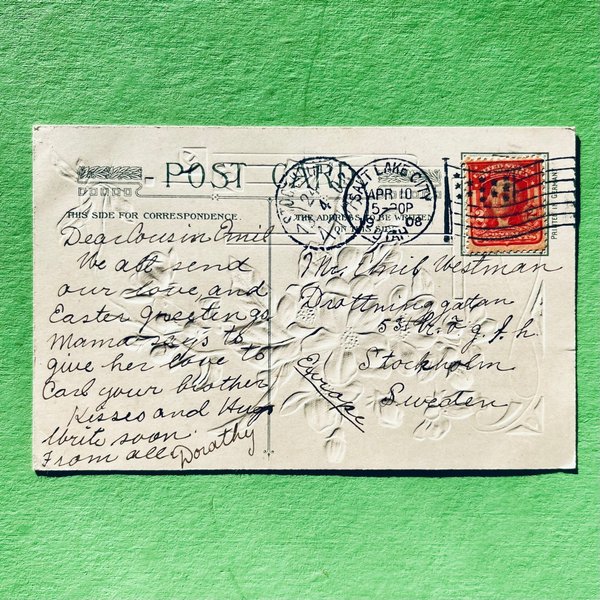 POST CARD
THIS SIDE FOR CORRESPONDENCE.
THE ADDRESS TO BE WRITTEN
ON THIS SIDE
SALT LAKE CITY
APR 10
5-20P
1908
UTAH
PRINTED IN GERMANY
Dear Cousin Emil
We all send
our love and
Easter Greetengs
Mama says to
give her love to
Carl your brother
Kisses and Hugs
Write soon.
From all Dorathy
Mr. Emil Westman
Drottninggatan
53
Stockholm
Sweden
Europe